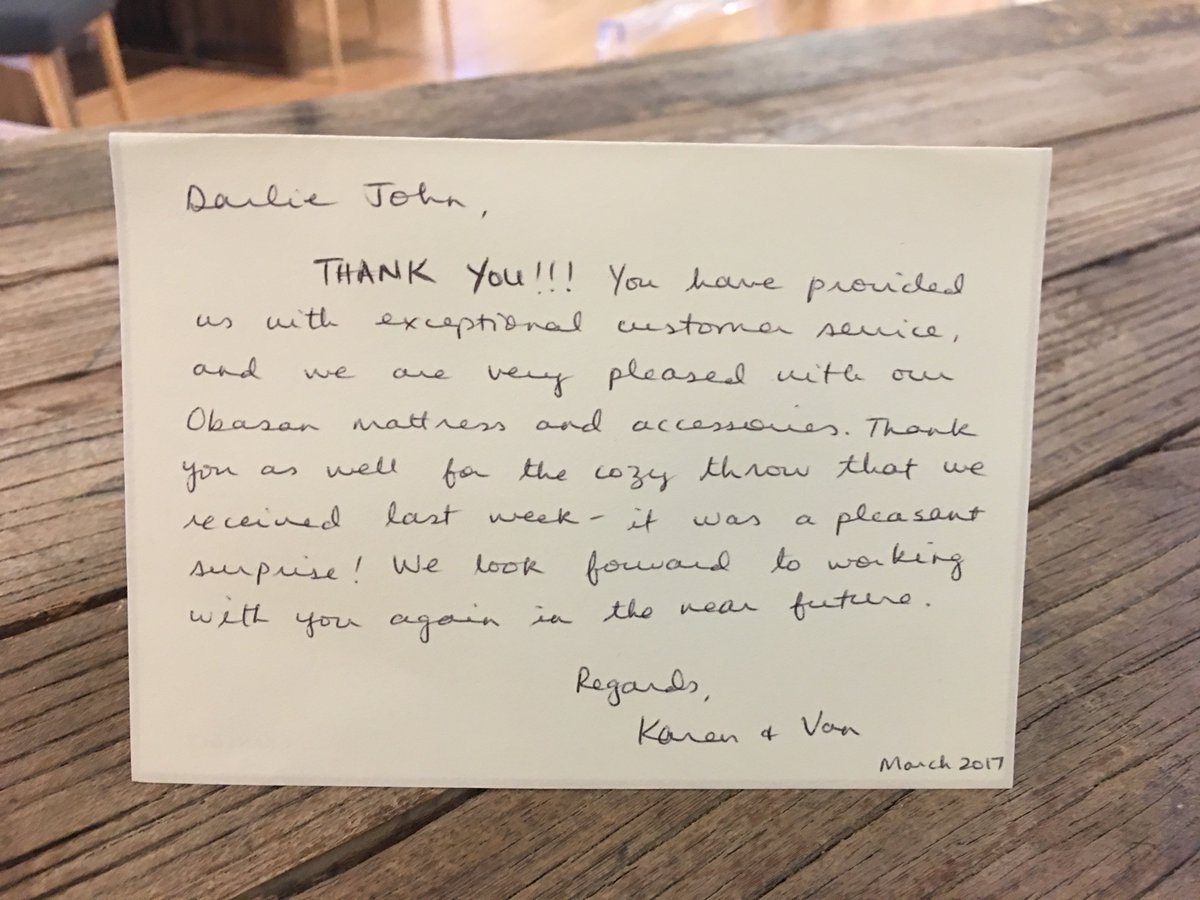 Darlie John,
THANK YOU!!! You have provided
us with exceptional customer service,
and we are very pleased with our
Obasan mattress and accessories. Thank
you as well for the cozy throw that we
received last week - it was a pleasant
surprise! We look forward to working
with you again in the near future.
Regards,
Karen & Van
March 2017